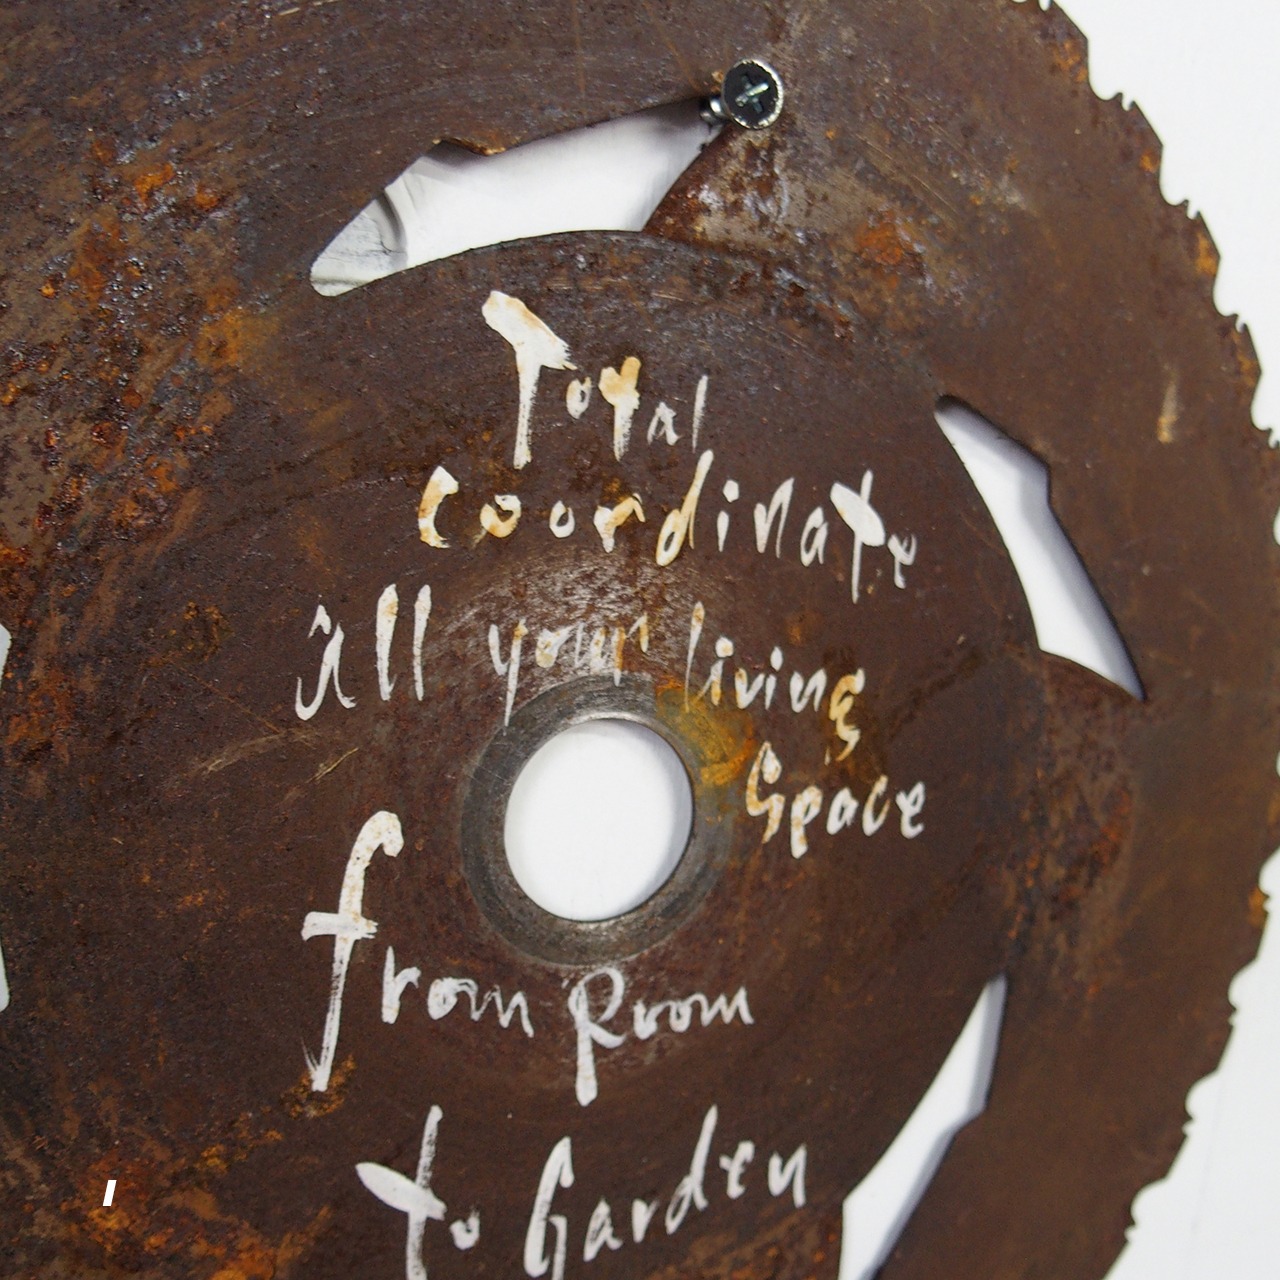 Total
coordinate
all your living
Space
from Room
to Garden